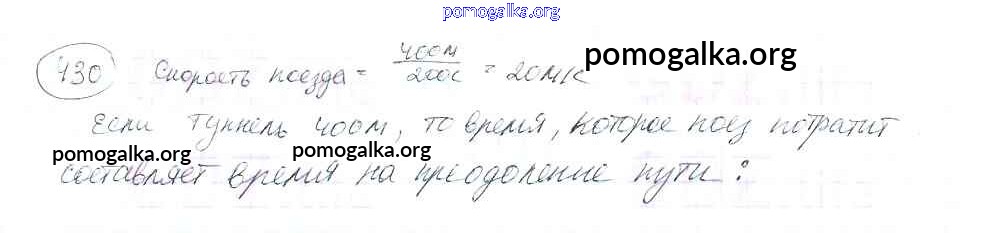 pomogalka.org
430 Скорость поезда = 400м / 200с = 20м/с
pomogalka.org
Если туннель 400м, то время, которое поез потратит
pomogalka.org pomogalka.org
составляет время на преодоление пути: